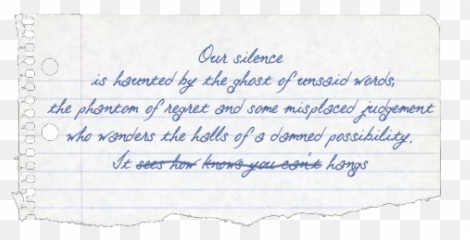 Our silence
is haunted by the ghost of unsaid words,
the phantom of regret and some misplaced judgement
who wanders the halls of a damned possibility.
It sees how knows you can't hangs